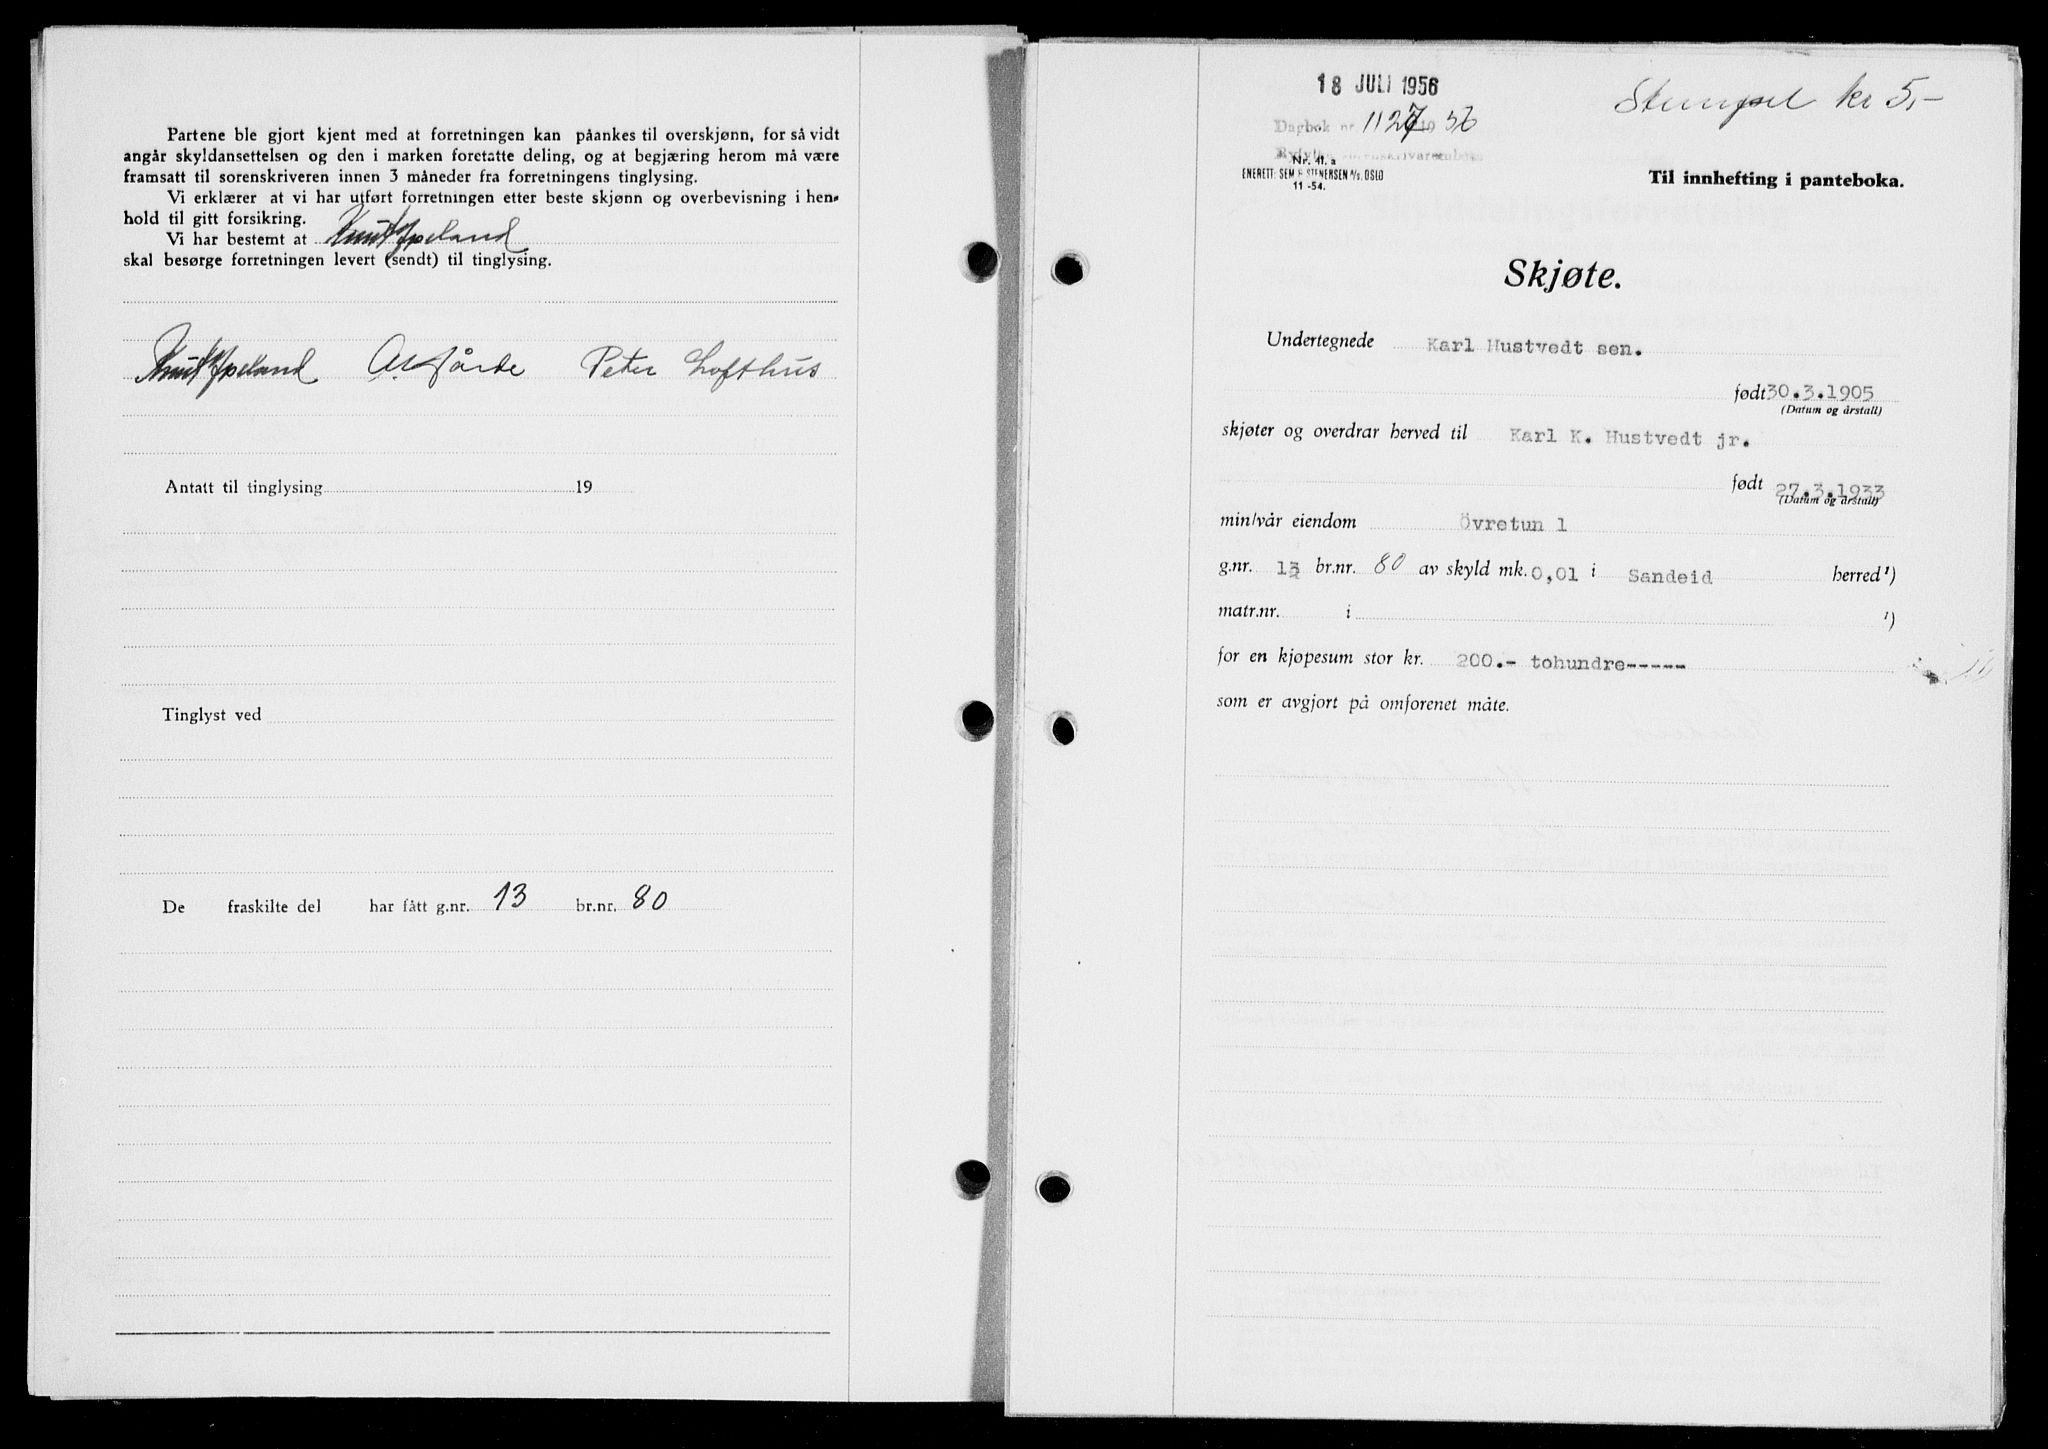 Partene ble gjort kjent med at forretningen kan påankes til overskjønn, for så vidt
angår skyldansettelsen og den i marken foretatte deling, og at begjæring herom må være
framsatt til sorenskriveren innen 3 måneder fra forretningens tinglysing.
Vi erklærer at vi har utført forretningen etter beste skjønn og overbevisning i hen-
hold til gitt forsikring.
Vi har bestemt at Knut
skal besørge forretningen levert (sendt) til tinglysing.
Knut Peter Lofthus
Antatt til tinglysing 19
Tinglyst ved
De fraskilte del har fått g.nr. 13 br.nr. 80
18 JULI 1956
Stempel kr 5,-
Dagbok nr. 1127 19 56
Nr. 41. a
ENERETT: SEM & STENERSEN A/S. OSLO
11-54.
Til innhefting i panteboka.
Skjøte.
Undertegnede Karl Hustvedt sen.
født 30.3.1905
(Datum og årstall)
skjøter og overdrar herved til Karl K. Hustvedt jr.
født 27.3.1933
(Datum og årstall)
min/vår eiendom Övretun 1
g.nr. 13 br.nr. 80 av skyld mk. 0,01 i Sandeid herred¹)
matr.nr. i ¹)
for en kjøpesum stor kr. 200.- tohundre-----
som er avgjort på omforenet måte.